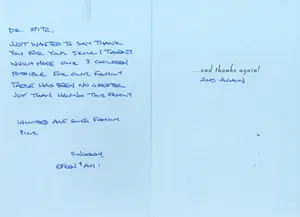 DR. SPITZ,
JUST WANTED TO SAY THANK
YOU FOR YOUR SKILL / TALENT
WHICH MADE OUR 3 CHILDREN
POSSIBLE FOR OUR FAMILY
THERE HAS BEEN NO GREATER
JOY THAN HAVING THIS FAMILY.
INCLUDED ARE SOME FAMILY
PICS.
SINCERELY,
...and thanks again!
AND AGAIN